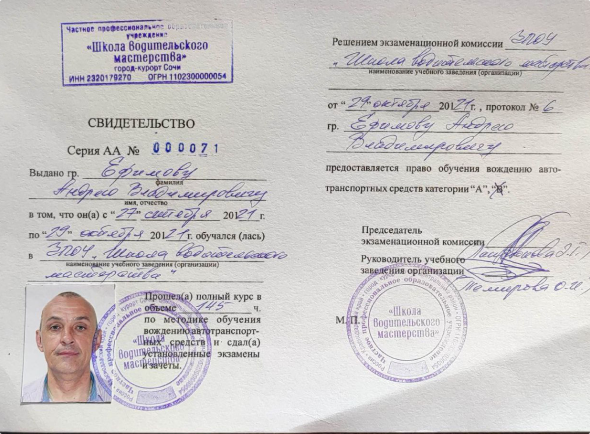 Частное профессиональное образовательное
учреждение
«Школа Водительского
мастерства»
город-курорт Сочи
ИНН 2320179270 ОГРН 1102300000054
СВИДЕТЕЛЬСТВО
Серия АА № 000071
Выдано гр. Ефимову
фамилия
Андрею Владимировичу
имя, отчество
в том, что он(а) с "27" сентября 20121 г.
по "29" октября 20121 г. обучался (лась)
в ЗПОУ „Школа водительского
наименование учебного заведения (организации)
мастерства"
Прошел(а) полный курс в
объеме 145 ч.
по методике обучения
вождению автотранспорт-
ных средств и сдал(а)
установленные экзамены
и зачеты.
«Школа
Водительского
мастерства»
Решением экзаменационной комиссии ЗПОУ
„Школа водительского мастерства
наименование учебного заведения (организации)
от "29" октября 20121 г., протокол № 6
гр. Ефимову Андрею
Владимировичу
предоставляется право обучения вождению авто-
транспортных средств категории "А", "В".
Председатель
экзаменационной комиссии
Руководитель учебного
заведения организации
Тамирова О.И.
М.П.
«Школа
Водительского
мастерства»